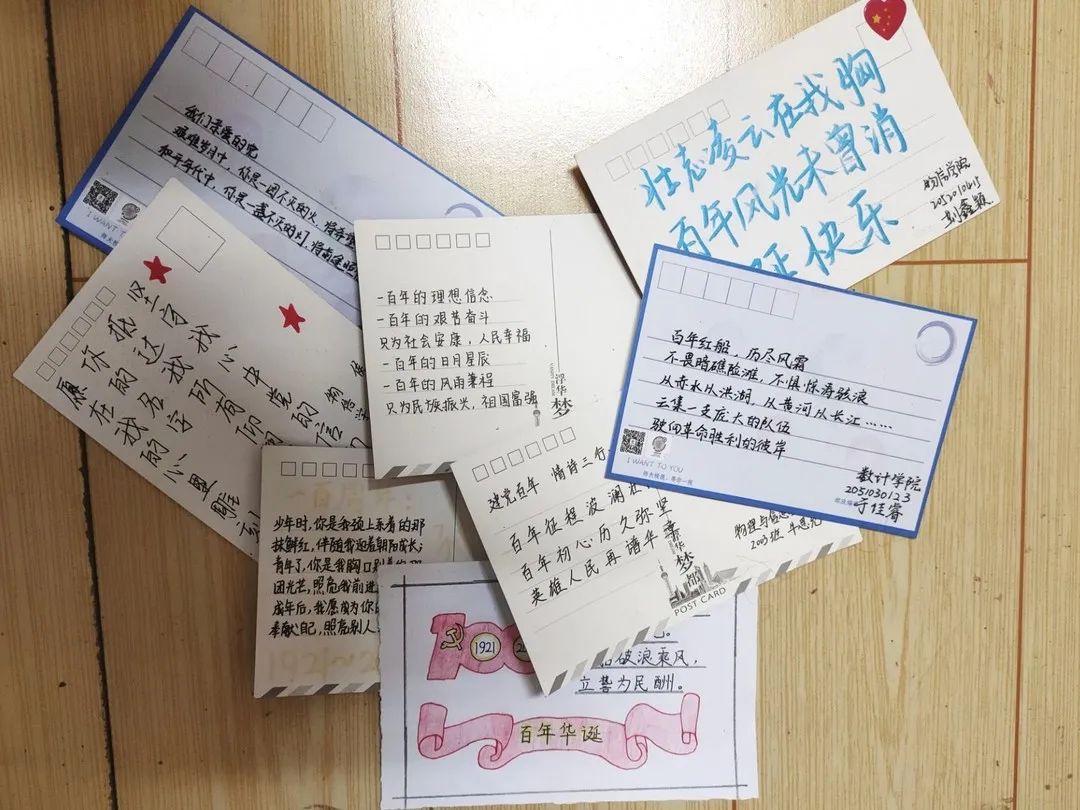 我们亲爱的党
艰难岁月中，你是一团不灭的火，将
和平年代中，你是一盏不灭的灯，将
I WANT TO
壮志凌云在我胸
百年风光未曾消
快乐
物信学院
刘鑫颖
坚守我心中党的信
抵达我所向
你的名字
愿在我的心里
一百年的理想信念
一百年的艰苦奋斗
只为社会安康，人民幸福
一百年的日月星辰
一百年的风雨兼程
只为民族振兴，祖国富强
浮华
梦
百年红船，历尽风霜
不畏暗礁险滩，不惧惊涛骇浪
从赤水从洪湖，从黄河从长江……
云集一支庞大的队伍
驶向革命胜利的彼岸
I WANT TO YOU
数计学院
2051030123
于佳睿
一百周年：
少年时，你是我颈上系着的那
抹鲜红，伴随我迎着朝阳成长；
青年了，你是我胸口别着的那
团光芒，照亮我前进
成年后，我愿成为你
奉献自己，照亮别人
1921~20
建党百年 情诗三行
百年征程波澜壮
百年初心历久弥坚
英雄人民再谱华章
物理与信息
2003班 牛思允
浮华
梦
POST CARD
100
1921
破浪乘风，
立誓为民酬。
百年华诞